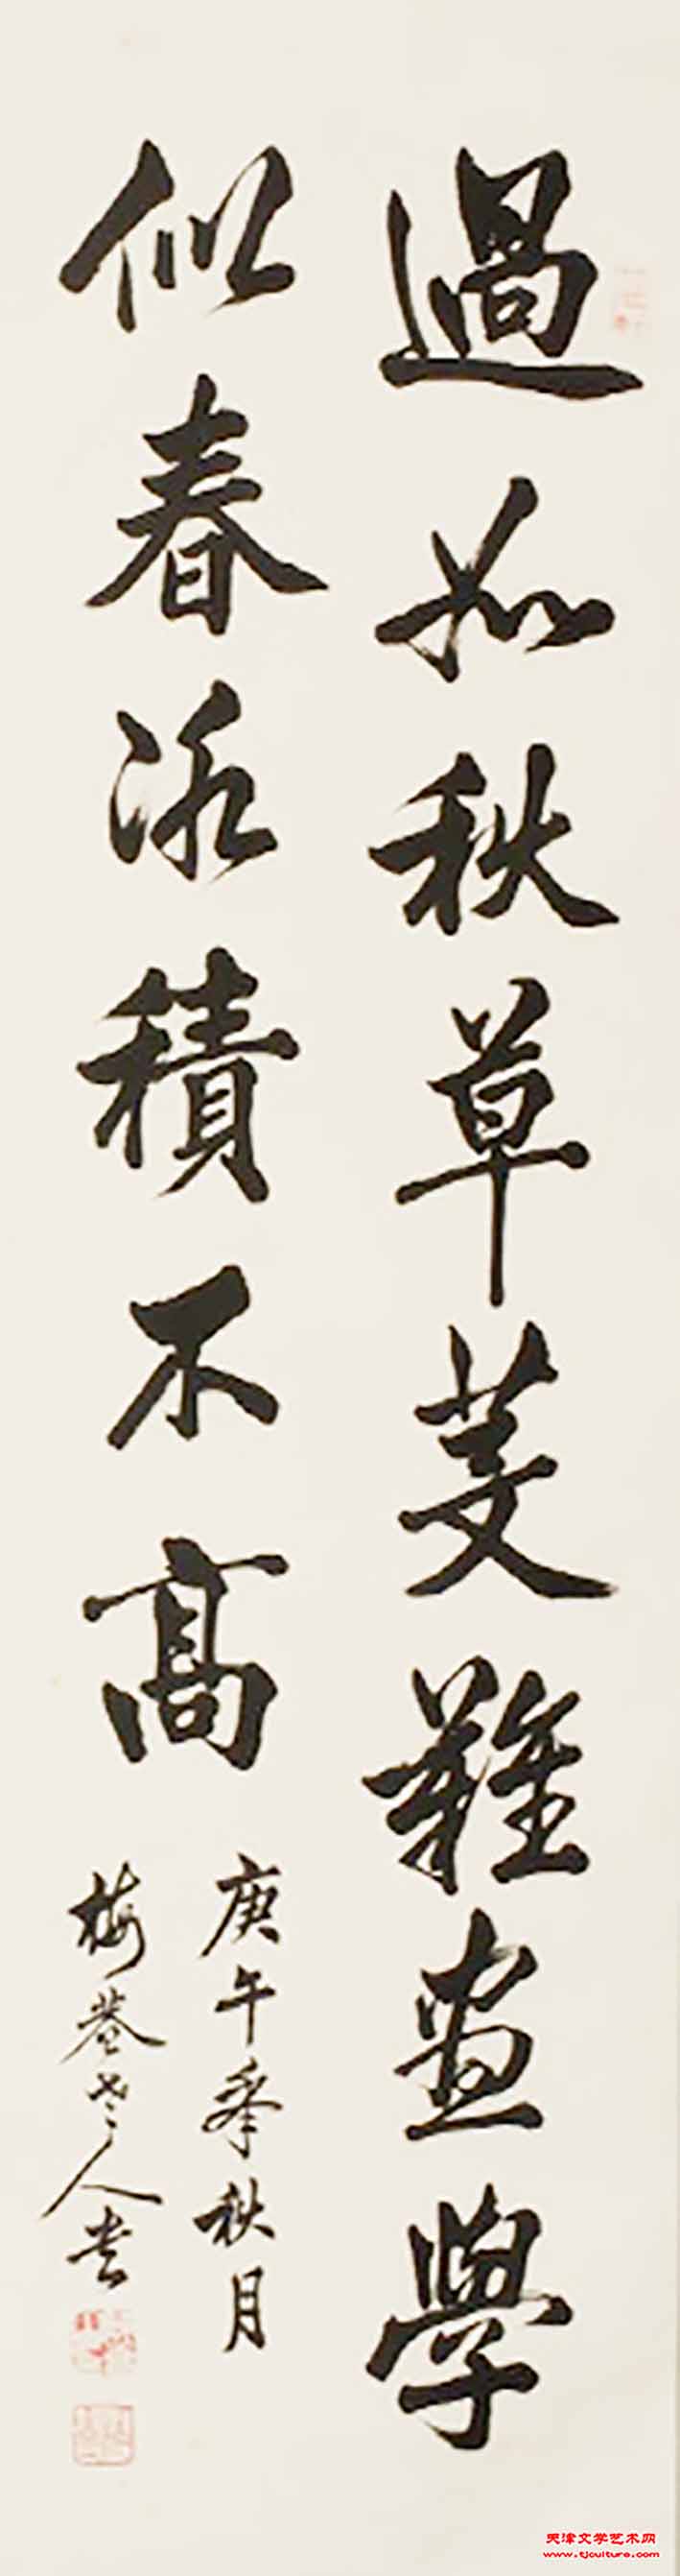 過如秋草芟難盡學
似春冰積不高
庚午季秋月
梅菴老人书
天津文学艺术网
www.tjculture.com